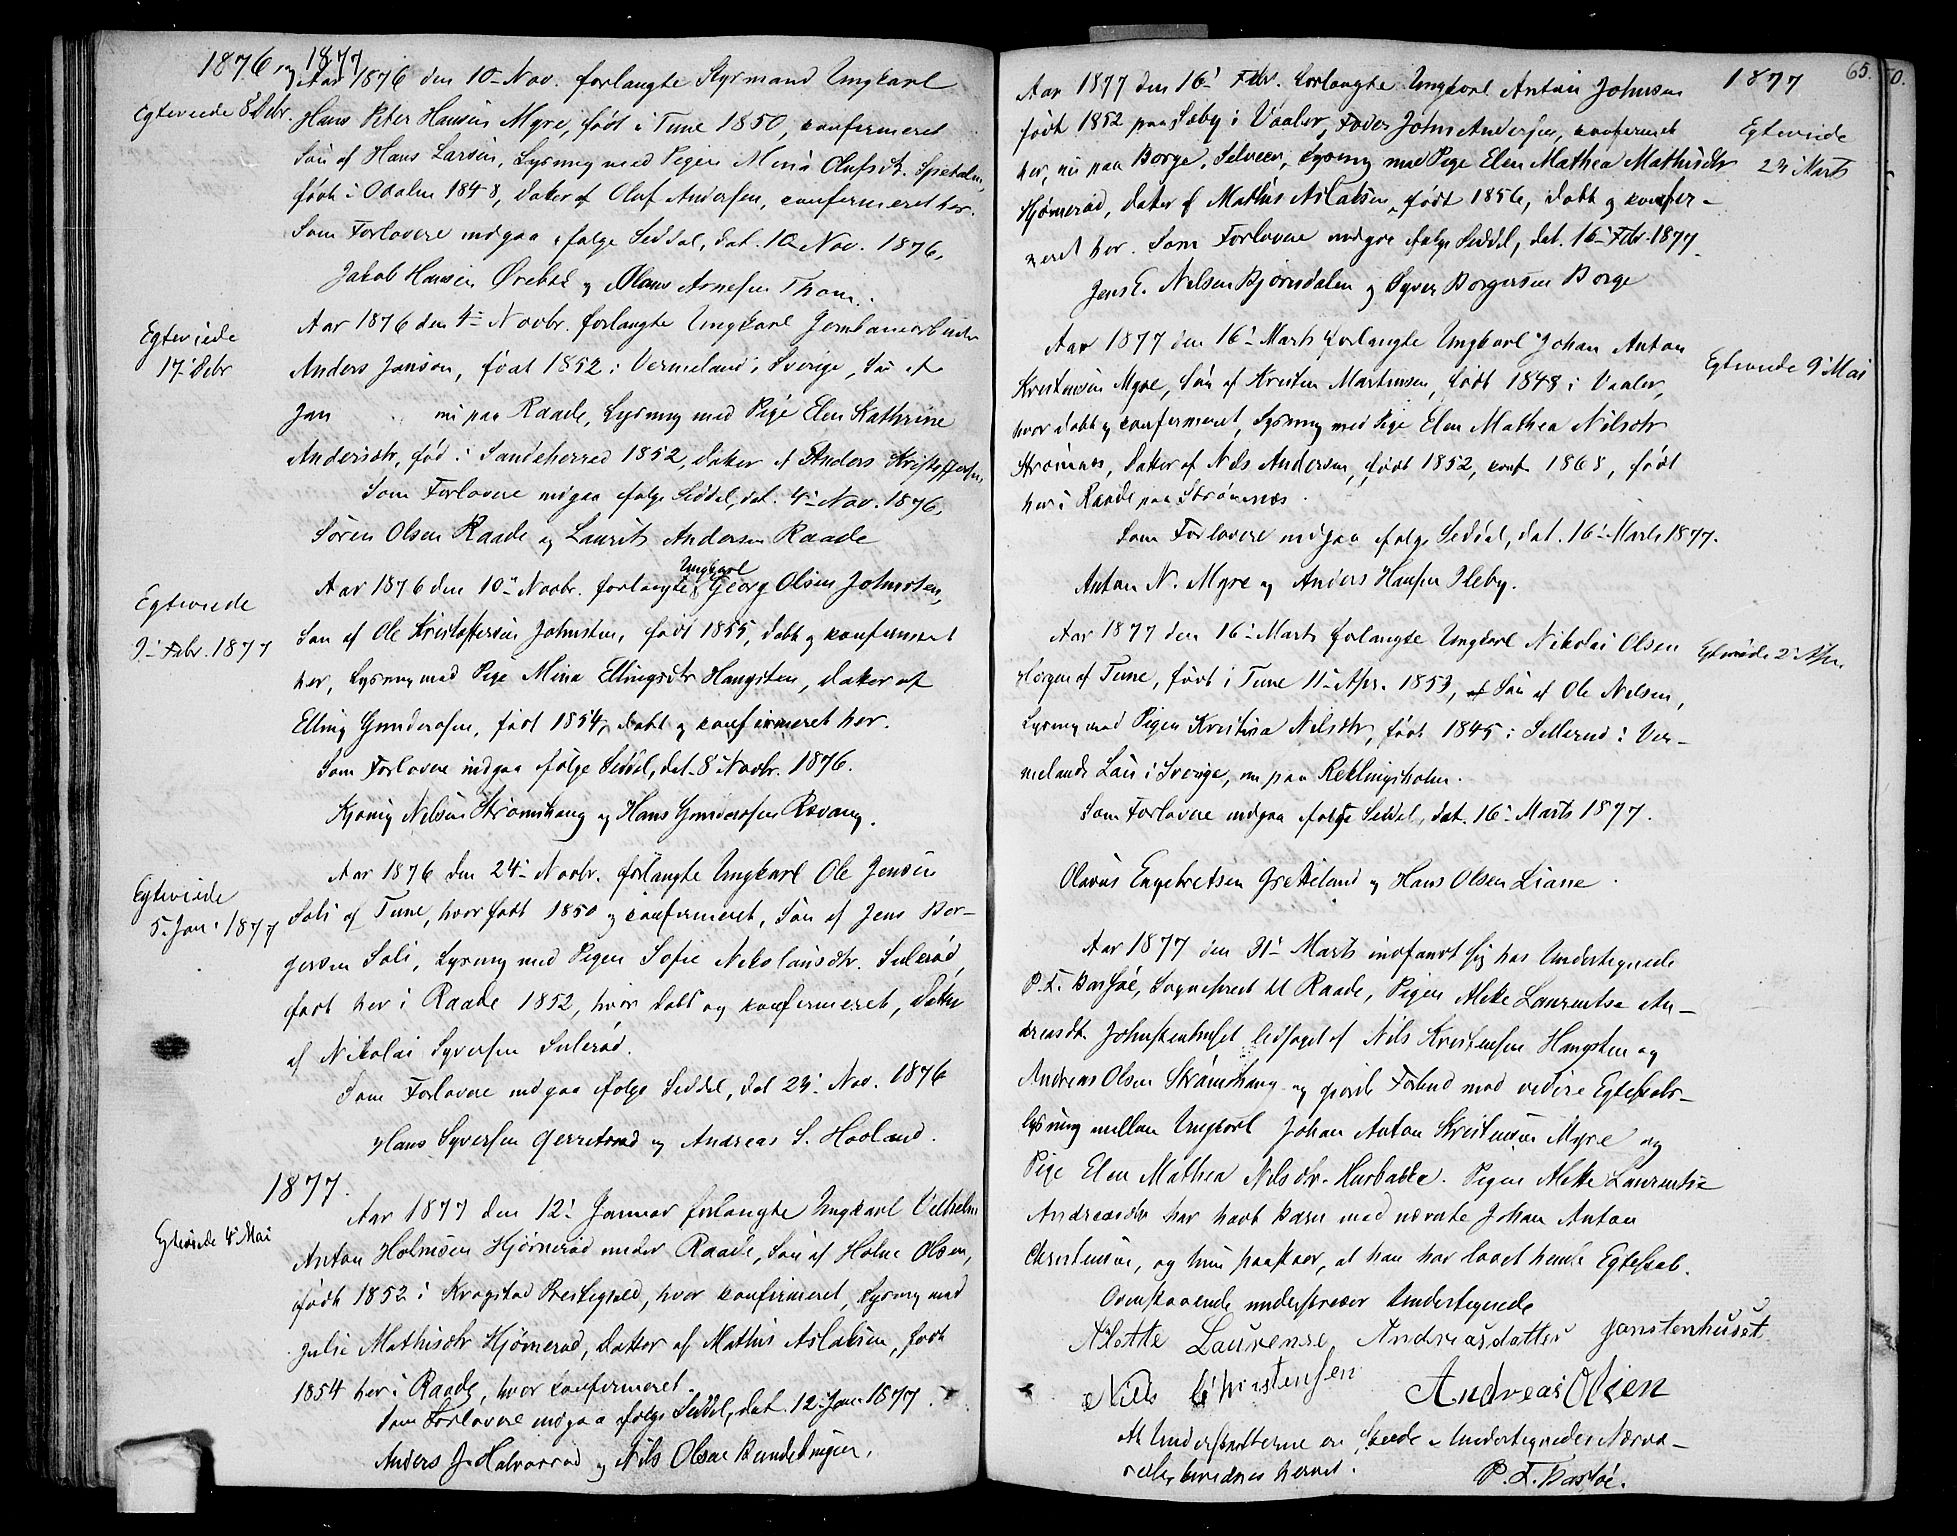 1876 og 1877
Aar 1876 den 10- Nov. forlangte Styrmand Ungkarl
Egteviede 8 Debr.
Hans Peter Hansen Myre, født i Tune 1850, confirmeret
Søn af Hans Larsen, Lysning med Pigen Mina Olufsdtr.
født i Odalen 1848, Dater af Oluf Andersen, confirmeret her.
Som Forlovere indgaa ifølge Seddel, dat. 10 Nov. 1876,
Jakob Hansen Ørebæk og Olaus Arnesen Thom.
Egteviede
17 Debr
Aar 1876 den 4- Novbr. forlangte Ungkarl Jernbanearbeider
Anders Janson, født 1852 i Vermeland i Sverige, Søn af
Jan nu paa Raade, Lysning med Pige Elen Kathrine
Andersdtr, fød i Sandeherred 1852, Dater af Anders Kristoffersen
Som Forlovere indgaa ifølge Seddel, dat. 4- Nov. 1876,
Søren Olsen Raade og Laurits Andersen Raade
Egteviede
9- Febr. 1877
Ungkarl
Aar 1876 den 10- Novbr. forlangte Georg Olsen Johnsten,
Søn af Ole Kristoffersen Johnsten, født 1855, døbt og konfirmeret
her, Lysning med Pige Mina Ellingsdtr Haugsten, Dater af
Elling Gundersen, født 1854, døbt og confirmeret her.
Som Forlovere indgaa ifølge Seddel, dat. 8 Novbr. 1876.
Nilsen Strømshaug og Hans Gundersen Rævaug.
Egteviede
5. Jan. 1877
Aar 1876 den 24- Novbr. forlangte Ungkarl Ole Jensen
Soli af Tune, hvor født 1850 og confirmeret, Søn af Jens Bor-
gersen Soli, Lysning med Pigen Sofie Nikolaisdtr. Sulerød,
født her i Raade 1852, hvor døbt og confirmeret, Datter
af Nikolai Syversen Sulerød.
Som Forlovere indgaa ifølge Seddel, dat 23- Nov. 1876
Hans Syversen og Andreas S. Haaland.
1877.
Egteviede 4- Mai
Aar 1877 den 12- Januar forlangte Ungkarl Vilhelm
Anton Holmsen Hjørnerød under Raade, Søn af Holm Olsen,
født 1852 i Kragstad Prestegjeld, hvor confirmeret, Lysning med
Julie Mathisdtr Hjørnerød, Datter af Mathis Aslaksen, født
1854 her i Raade, hvor confirmeret.
Som Forlovere indgaa ifølge Seddel, dat. 12- Jan. 1877.
Anders J. Halvorsrød og Nils Olsen
65.
0.
1877
Aar 1877 den 16- Febr. forlangte Ungkarl Anton Johnsen
Egteviede
23 Marts
født 1852 paa Sæby i Vaaler, Fader John Andersen, confirmeret
her, nu paa Borge, Lysning med Pige Elen Mathea Mathisdtr
Hjørnerød, Dater af Mathis Aslaksen, født 1856, døbt og confir-
meret her. Som Forlovere indgaa ifølge Seddel, dat. 16- Febr. 1877.
Jens E. Nilsen Bjørnsdalen og Syver Borgersen Borge
Egteviede 9 Mai
Aar 1877 den 16- Marts forlangte Ungkarl Johan Anton
Kristensen Myre, Søn af Kristen Martinsen, født 1848 i Vaaler,
hvor døbt og confirmeret, Lysning med Pige Elen Mathea Nilsdtr
Strømnes, Dater af Nils Andersen, født 1852, conf. 1868, født
her i Raade paa Strømnes.
Som Forlovere indgaa ifølge Seddel, dat. 16- Marts 1877.
Anton N. Myre og Anders Hansen Ileby.
Aar 1877 den 16- Marts forlangte Ungkarl Nikolai Olsen
Egteviede 2-
af Tune, født i Tune 11- Apr. 1853, Søn af Ole Nelsen,
Lysning med Pigen Kristina Nilsdtr, født 1845 i Sillerud i Ver-
melands Län i Sverige, nu paa Reklingsholm.
Som Forlovere indgaa ifølge Seddel, dat. 16- Marts 1877.
Olavus Engebretsen Gretteland og Hans Olsen Liane.
Aar 1877 den 31- Marts indfandt sig hos Undertegnede
P. L. Barsøe, Sognepræst til Raade, Pigen Alette Laurentse An-
dreasdt. Johnstenhuset ledsaget af Nils Kristensen Haugsten og
Andreas Olsen Strømshaug og gjorde Forbud mod videre Egteskabs-
lysning mellem Ungkarl Johan Anton Kristensen Myre og
Pige Elen Mathea Nilsdtr. Pigen Alette Laurentse
Andreasdtr har havt Barn med nævnte Johan Anton
Christensen, og hun paastaar, at han har lovet hende Egteskab.
Ovenstaaende underskriver Undertegnede
Alette Laurense Andreasdatter Jonstenhuset
Niels Christensen Andreas Olsen
At Underskrifterne ere skeede i Undertegnedes Nærvæ-
relse bevidnes herved.
P. L. Barsøe.